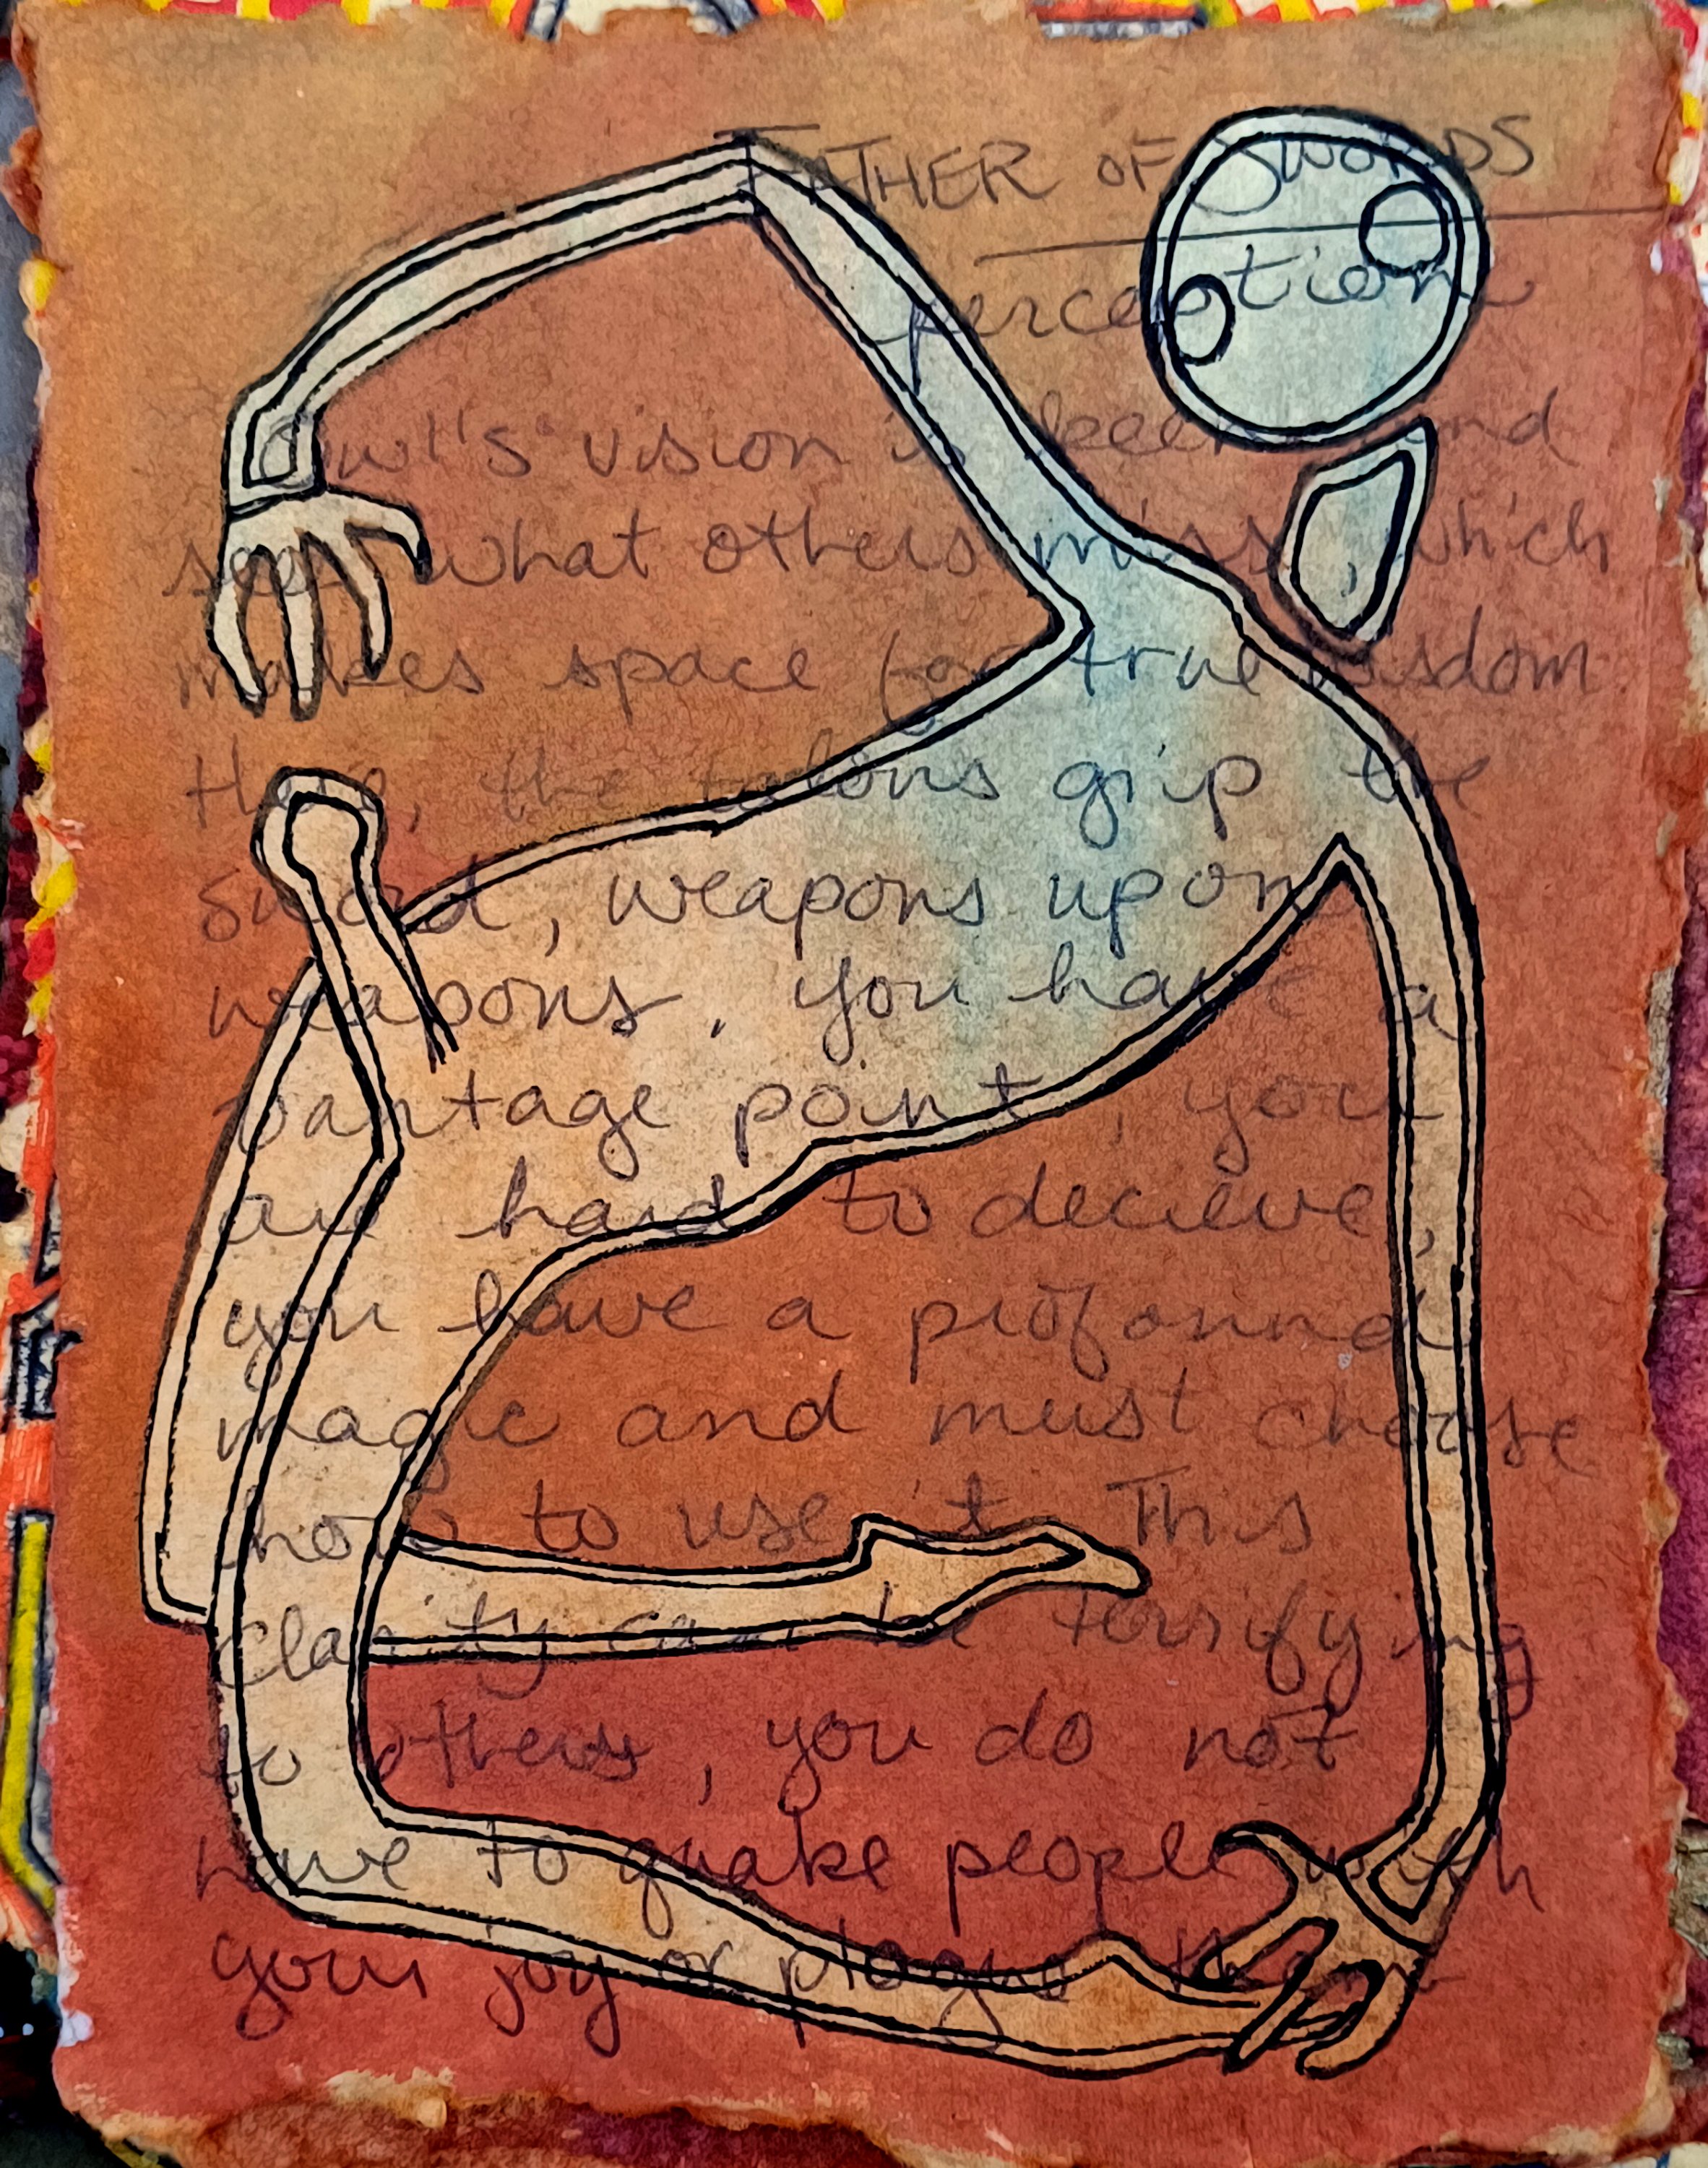 FATHER OF SWORDS
perception
Owl's vision is keen and
sees what others miss, which
makes space for true wisdom
Here, the talons grip the
sword, weapons upon
weapons. You have a
vantage point, you
are hard to decieve,
you have a profound
magic and must choose
how to use it. This
clarity can be terrifying
to others, you do not
have to quake people with
your joy or plague them